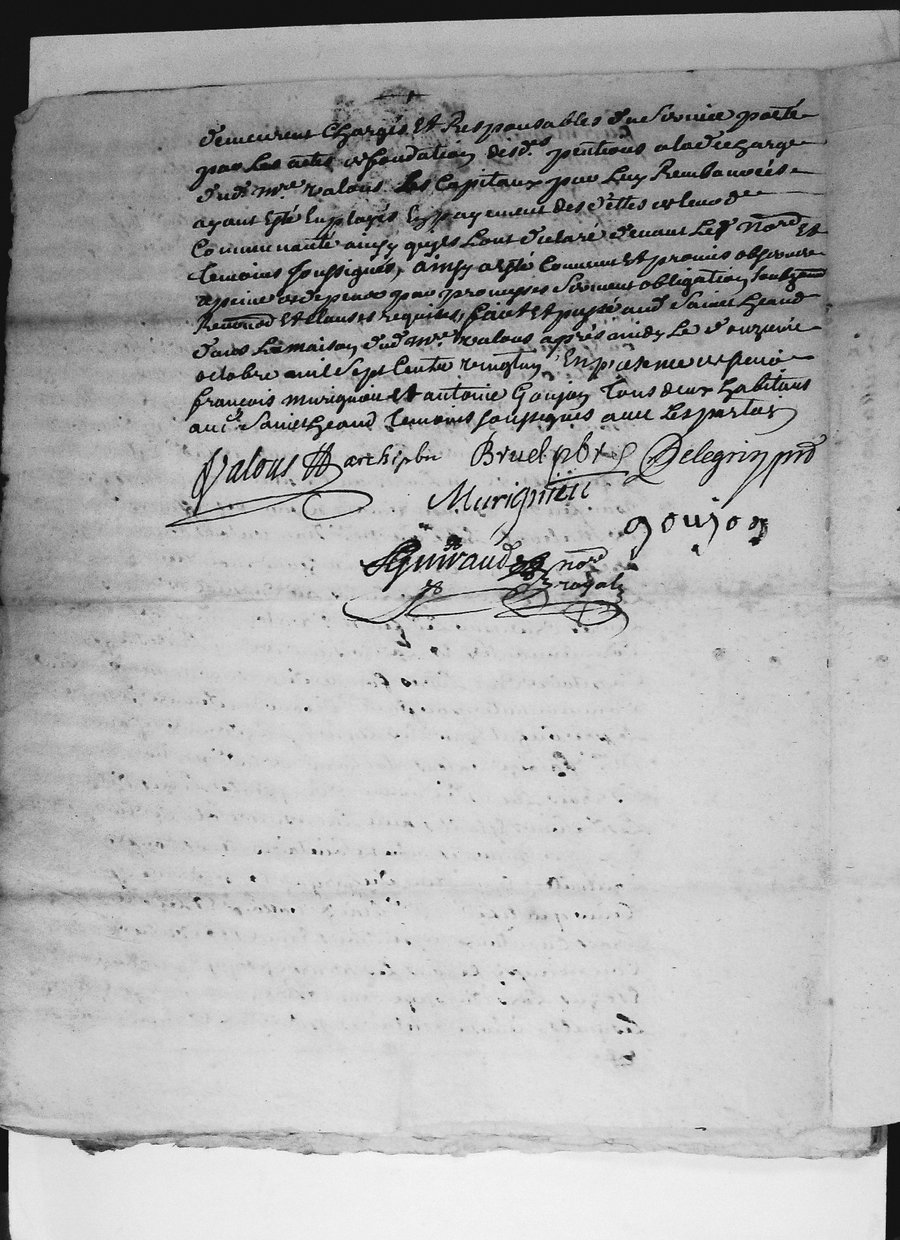 demeurent Chargés Et Responsables du Service porté
par Les actes de fondation des ds pentions a la decharge
dud Mre valous Les Capitaux par Luy Rembourcés
ayant Esté Employés En payement des dettes de lad
Communauté ainsy quils L'ont declaré devant Led Nore Et
temoins soussignes, ainsy a esté Convenu Et promis observer
a peine de depens par promesses serment obligation
Renond Et Clauses requises, fait Et passé aud Saint heand
dans La maison dud Mre valous après midy Le douzieme
octobre mil Sept Cents vingt un, En presence de sieur
françois murigneu Et antoine Goujon tous deux habitans
aud Saint heand temoins soussignes avec Les parties
Valous archipbre Bruel pbre Pelegrin
Murigneu
goujon
Guiraud nore
royal